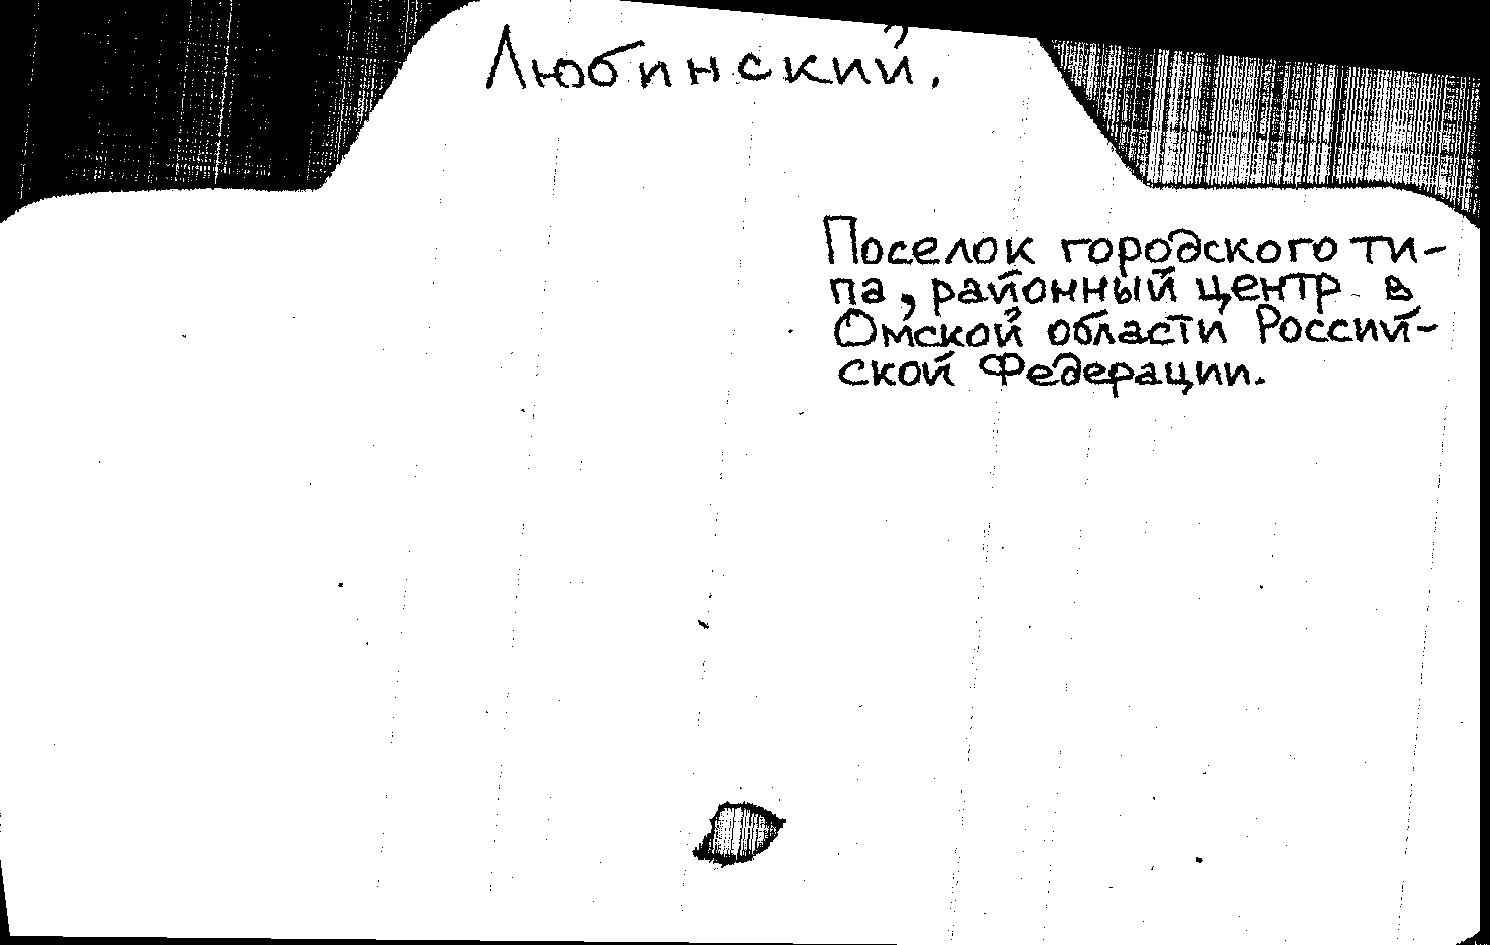 Любинский.
Поселок городского ти-
па, районный центр в
Омской области Россий-
ской Федерации.